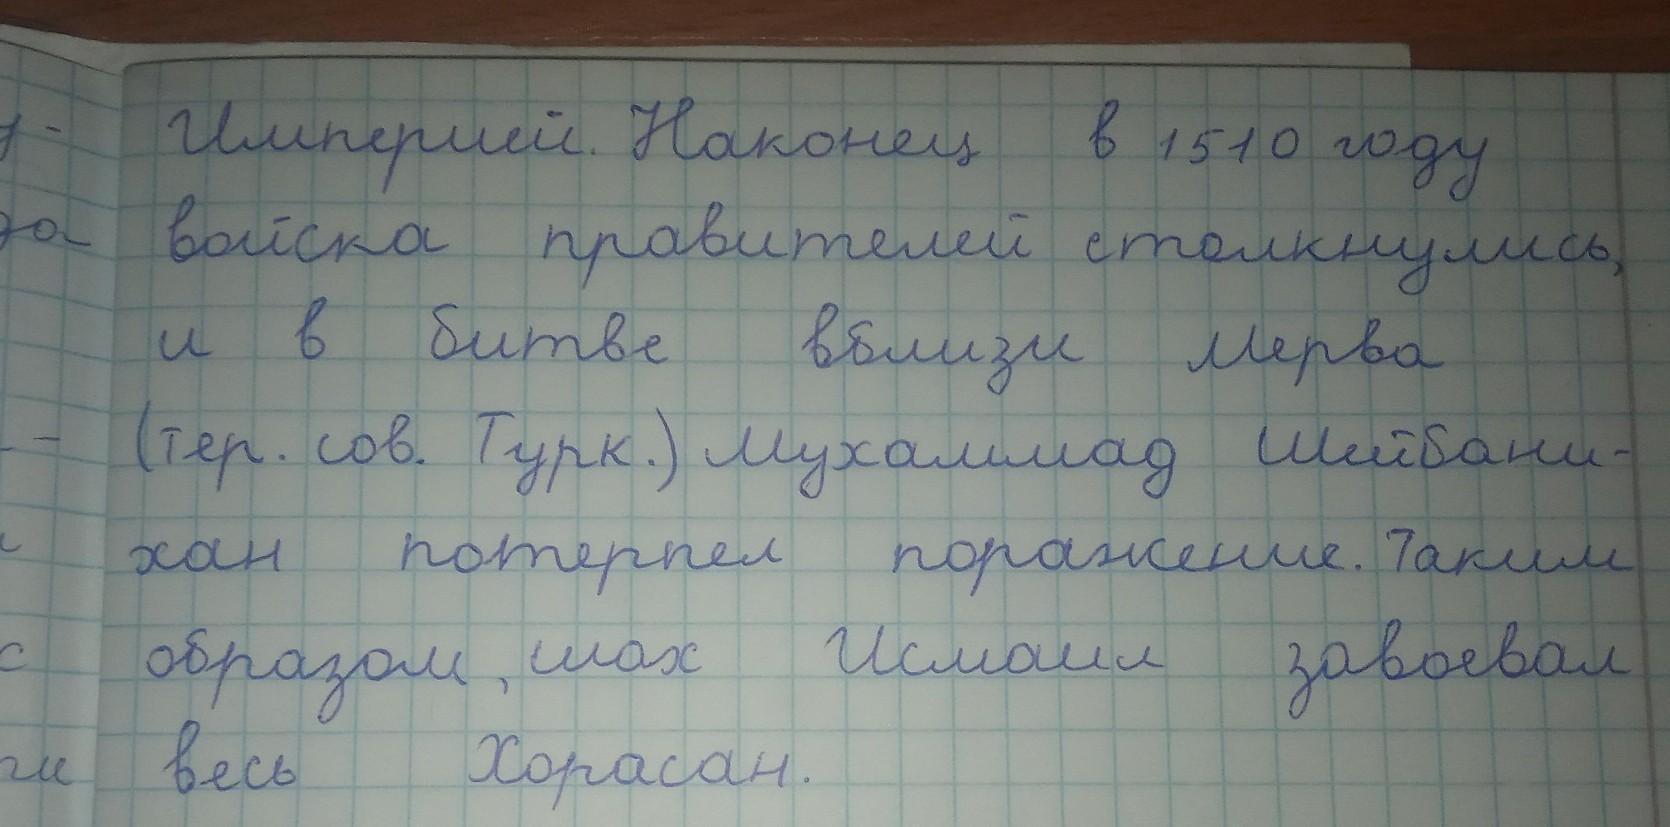 Империей. Наконец в 1510 году
войска правителей столкнулись,
и в битве вблизи Мерва
(тер. сов. Турк.) Мухаммад Шейбани-
хан потерпел поражение. Таким
образом, шах Исмаил завоевал
весь Хорасан.